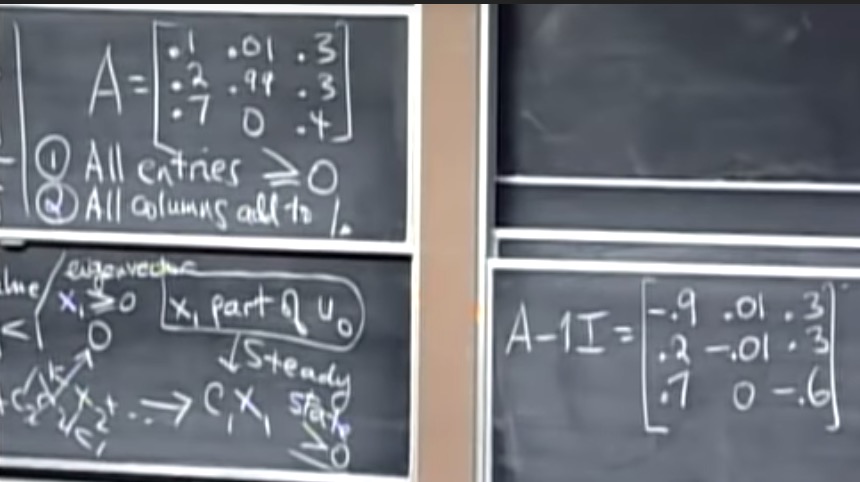 A = [ .1 .01 .3
.2 .99 .3
.7 0 .4 ]
① All entries ≥ 0
② All columns add to 1.
eigenvector
x₁ ≥ 0
x₁ part of u₀
< 0
↓ Steady
... → c₁x₁ state
≥ 0
A - 1I = [ -.9 .01 .3
.2 -.01 .3
.7 0 -.6 ]